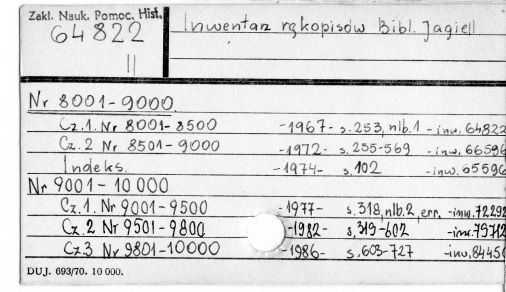 Zakł. Nauk. Pomoc. Hist.
64822
II
Inwentarz rękopisów Bibl. Jagiell
Nr 8001-9000
Cz.1. Nr 8001-8500 -1967- s.253, nlb.1 - inw. 64822
Cz. 2 Nr 8501-9000 -1972- s.255-569 - inw. 66596
Indeks. -1974- s.102 -inw. 65596
Nr 9001-10 000
Cz.1. Nr 9001-9500 -1977- s.318, nlb.2, err. -inw. 72292
Cz. 2 Nr 9501-9800 -1982- s.319-602 -inw. 79712
Cz.3 Nr 9801-10000 -1986- s.603-727 -inw. 84450
DUJ. 693/70. 10 000.